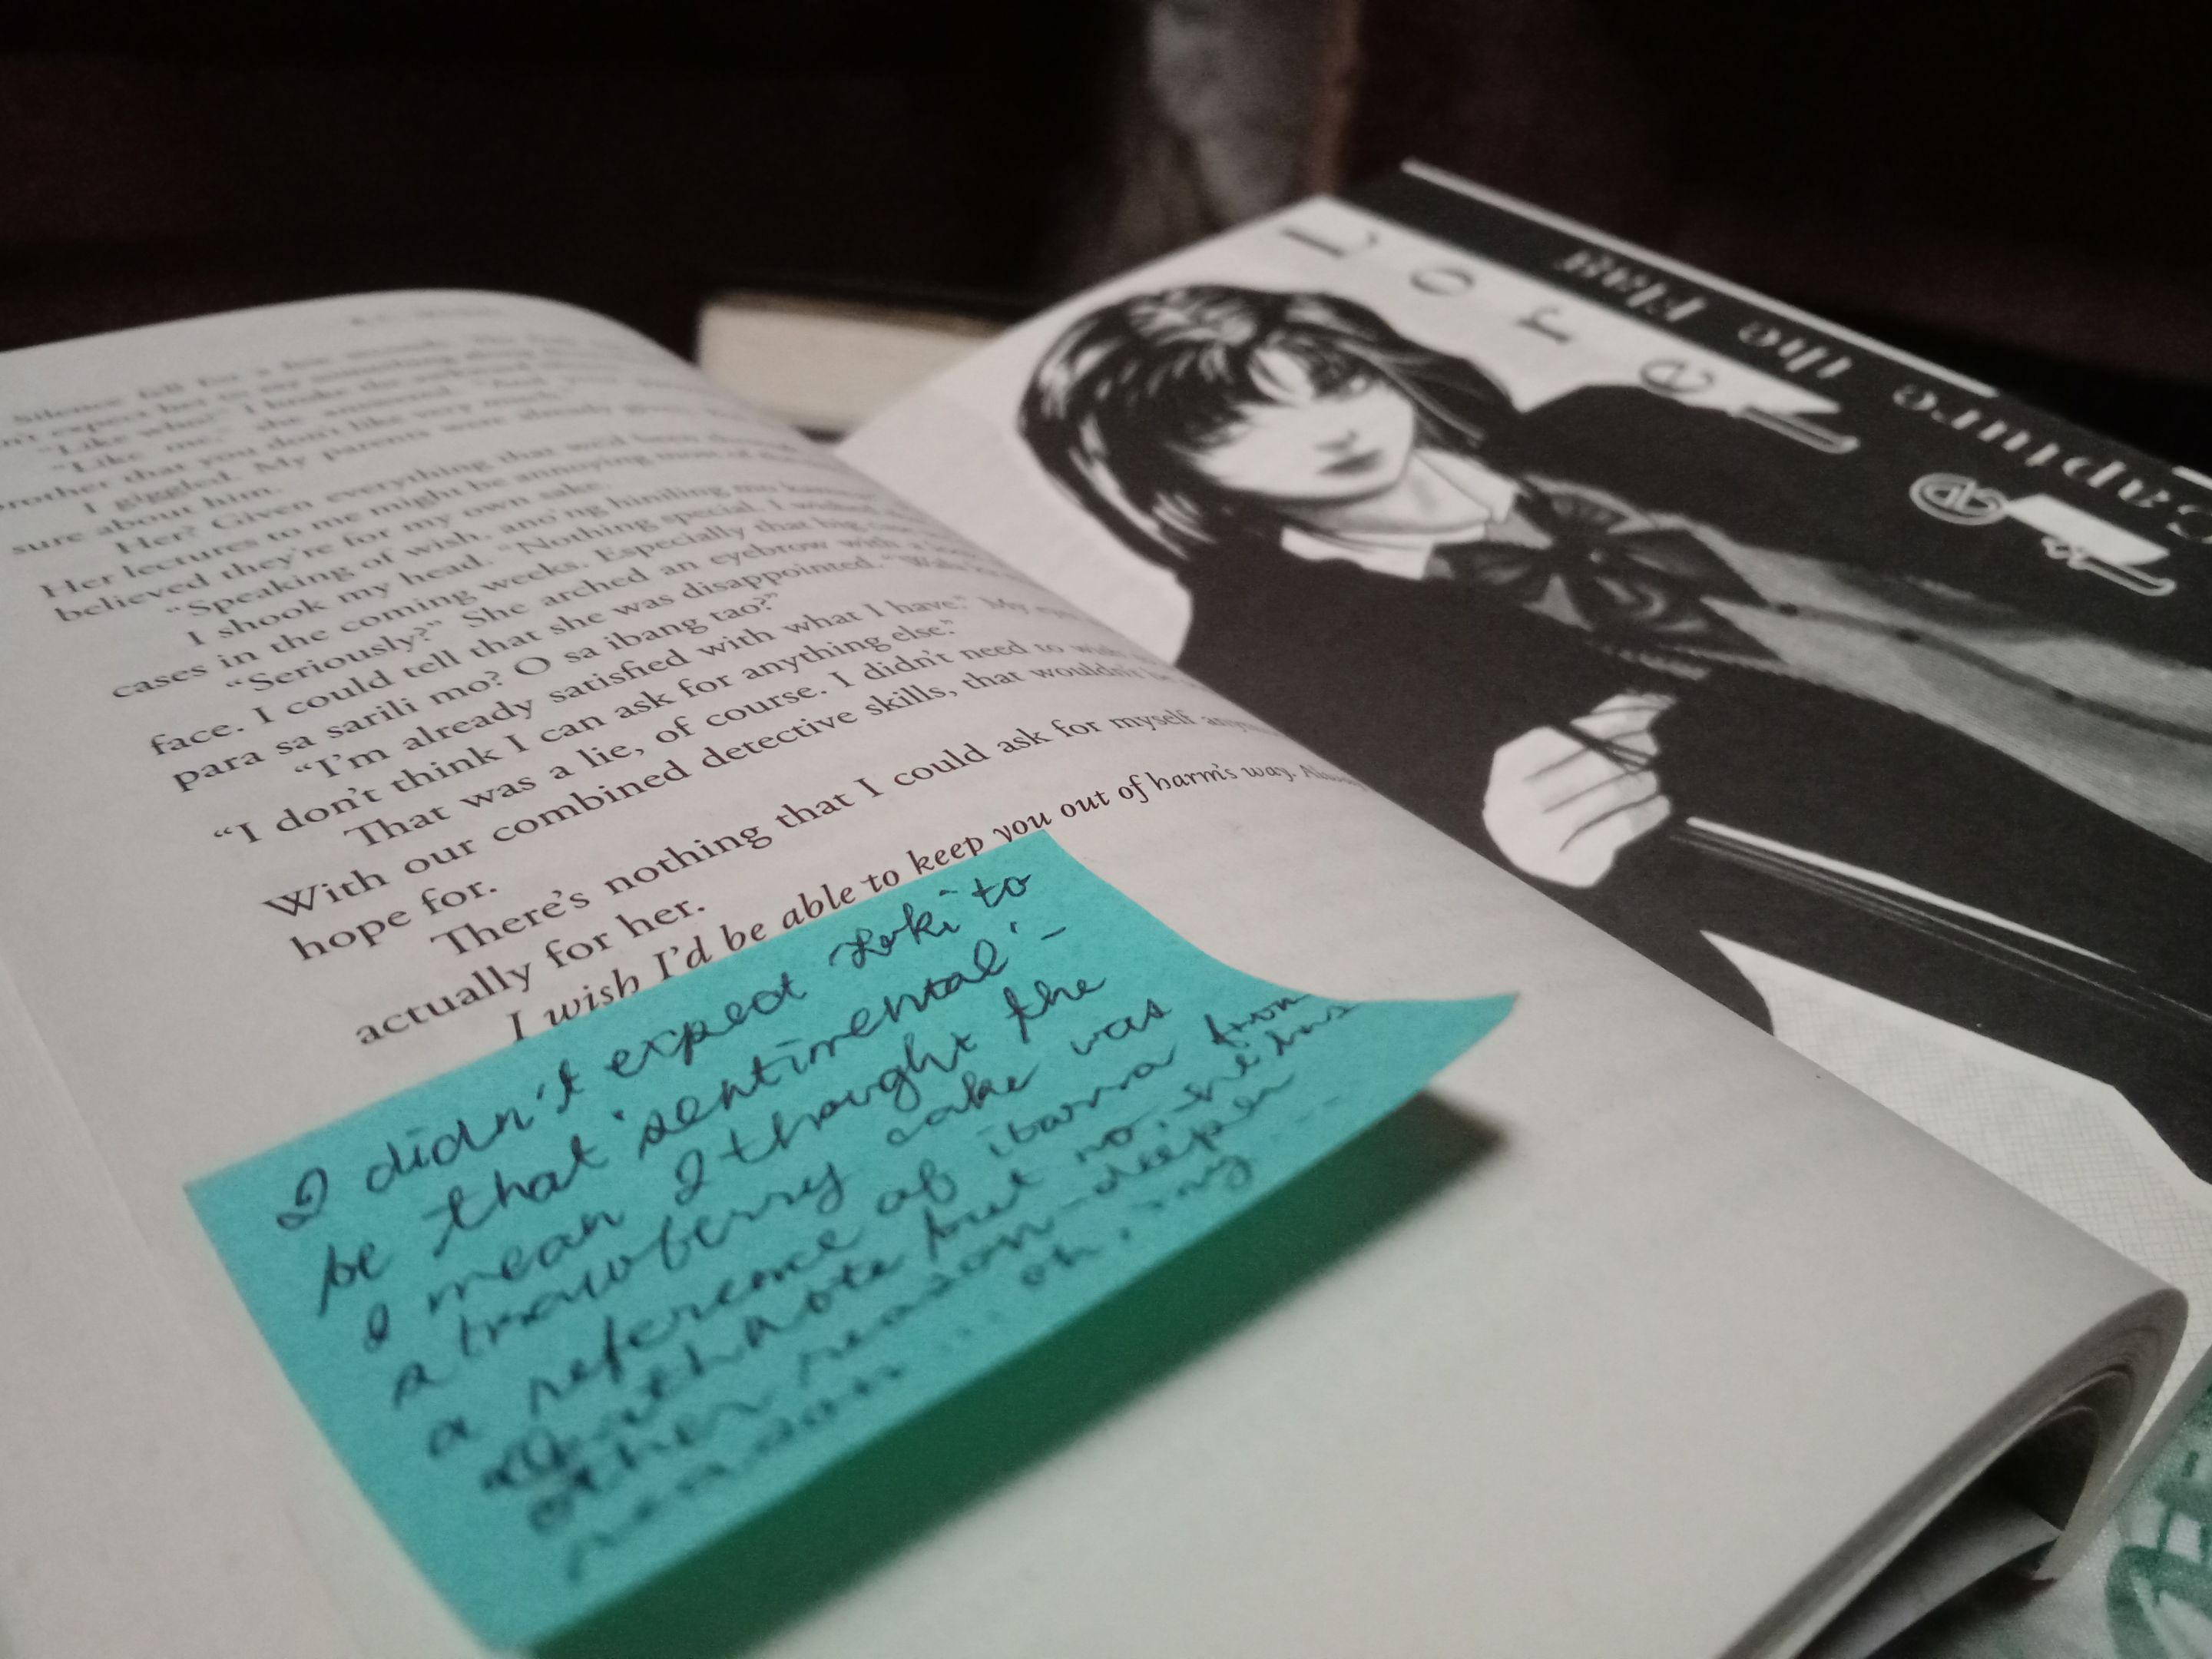 Silence fell for a few seconds.
n't expect her to say something
"Like who?" I broke the awkward
"Like me," she answered. "And
brother that you don't like very much."
I giggled. My parents were already
sure about him.
Her? Given everything that we'd been
Her lectures to me might be annoying most of
believed they're for my own sake.
"Speaking of wish, ano'ng hiniling mo
I shook my head. "Nothing special. I wished
cases in the coming weeks. Especially that big
"Seriously?" She arched an eyebrow with a
face. I could tell that she was disappointed. "Wala
para sa sarili mo? O sa ibang tao?"
"I'm already satisfied with what I have." My
"I don't think I can ask for anything else."
That was a lie, of course. I didn't need to
With our combined detective skills, that wouldn't
hope for.
There's nothing that I could ask for myself
actually for her.
I wish I'd be able to keep you out of harm's way.
I didn't expect Loki to
be that 'sentimental' -
I mean I thought the
strawberry cake was
a reference of ibarra from
deathnote but no, he has
other reason - deeper
reason ... oh,
Lorel
Capture the Flag